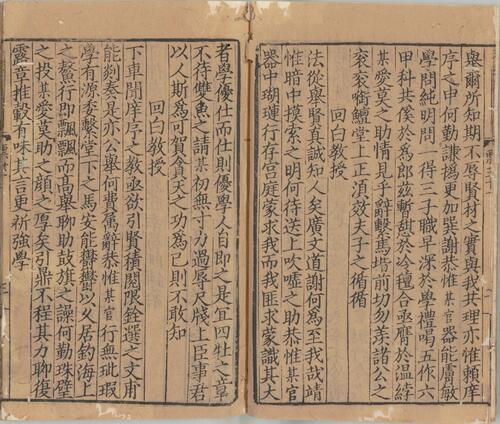 舉爾所知期不辱賢材之實與我共理亦惟賴庠
序之中何勤謙撝更加巽謝恭惟某官器能膚敏
學問純明問一得三子職早深於學禮喝五作六
甲科共傒於為郎茲暫詘於泠氊合亟膺於温綍
某愛莫之助情見乎辭繫馬堦前切勿羨諸公之
衮衮銜鱣堂上正湏效夫子之循循
回白教授
法從舉賢真誠知人矣廣文道謝何為至我哉靖
惟暗中摸索之明何待送上吹嘘之助恭惟某官
器中瑚璉行存宫庭蒙求我而我匪求蒙識其大
者學優仕而仕則優學人自即之是宜四牡之章
不待雙魚之請某初無寸力過辱尺牋上臣事君
以人斯為可賀貪天之功為已則不敢知
回白教授
下車誾庠序之教亟欲引賢積閥限銓選之文甫
能剡奏是亦公舉何費属辭恭惟某官行無玼瑕
學有源委繫堂下之馬安能欝欝以乆居釣海上
之鼇行即飄飄而高舉聊助鼓旗之譟何勤珠璧
之投某愛莫助之顔之厚矣引鼎不程其力聊復
露章推轂有味其言更祈強學